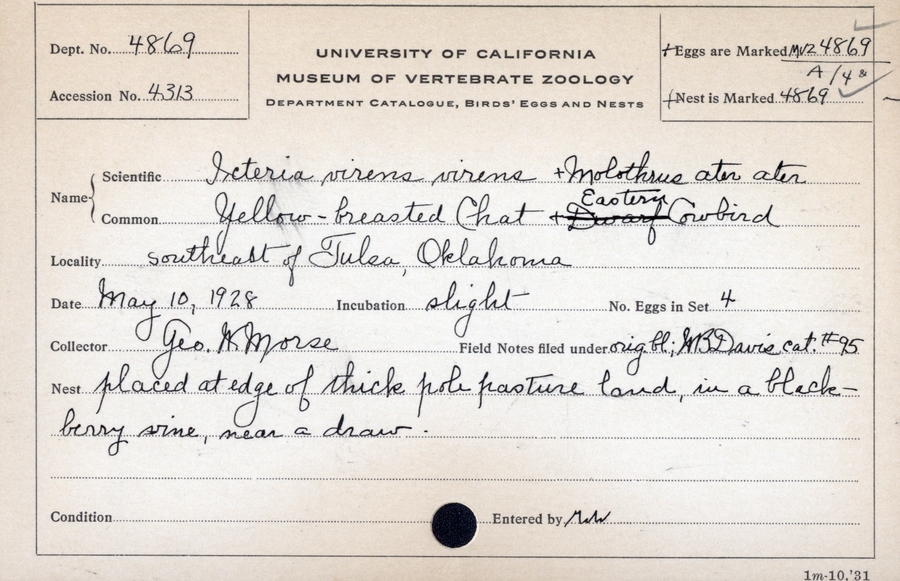 Dept. No. 4869
Accession No. 4313
UNIVERSITY OF CALIFORNIA
MUSEUM OF VERTEBRATE ZOOLOGY
DEPARTMENT CATALOGUE, BIRDS' EGGS AND NESTS
Eggs are Marked MVZ 4869
A/4
Nest is Marked 4869
Name
Scientific Icteria virens virens + Molothrus ater ater
Eastern
Common Yellow-breasted Chat + Dwarf Cowbird
Locality southeast of Tulsa, Oklahoma
Date May 10, 1928 Incubation slight No. Eggs in Set 4
Collector Geo. W. Morse Field Notes filed under orig bl; WBDavis cat. #95
Nest placed at edge of thick pole pasture land, in a black-
berry vine, near a draw.
Condition Entered by
1m-10,'31